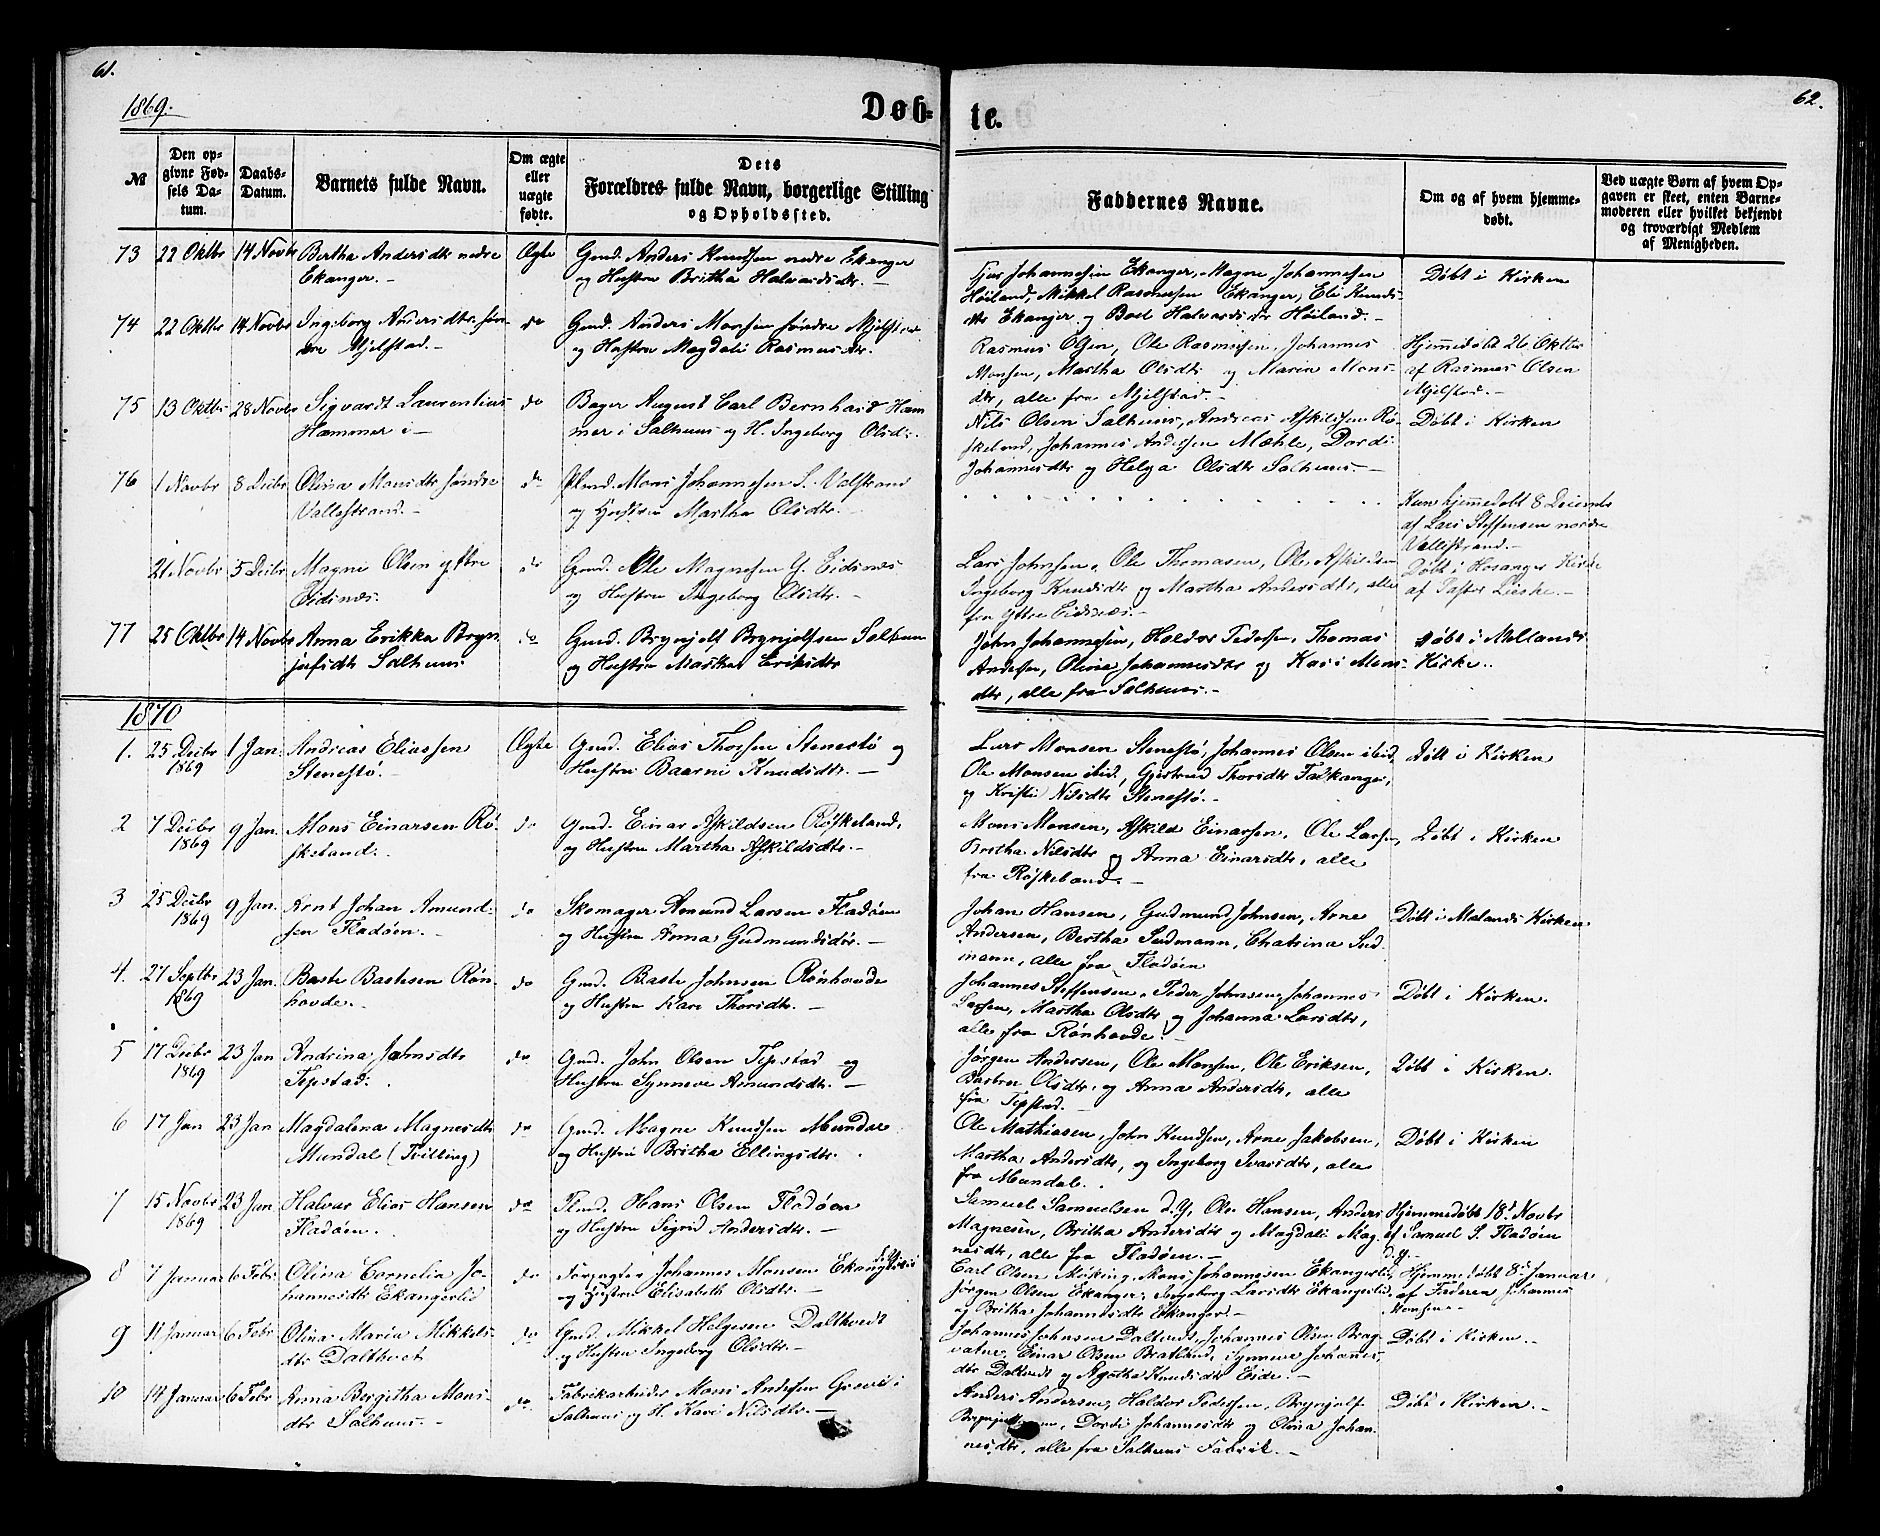 61.
1869.
Døb-
№
Den op-
givne Fød-
sels Da-
tum.
Daabs-
Datum.
Barnets fulde Navn.
Om ægte
eller
uægte
fødte.
Dets
Forældres fulde Navn, borgerlige Stilling
og Opholdssted.
73 22 Oktbr 14 Novbr Bertha Andersdtr nedre Ægte Gmd. Anders Knudsen nedre Ekanger
Ekanger.- og Hustru Britha Halvardsdtr.-
74 22 Oktbr 14 Novbr Ingeborg Andersdtr. søn- do Gmd. Anders Monsen søndre Mjelstad
dre Mjelstad.- og Hustru Magdeli Rasmusdtr.
75 13 Oktbr 28 Novbr Sigvardt Laurentius do Bager August Carl Bernhard Ham-
Hammer i- mer i Salhuus og H. Ingeborg Olsdtr.
76 1 Novbr 8 Decbr Olina Monsdtr søndre do Plmd. Mons Johannesen S. Valestrand
Vallestrand.- og Hustru Martha Olsdtr.-
21 Novbr 5 Decbr Magne Olsen yttre do Gmd. Ole Magnesen Y. Eidsnæs
Eidsnæs. og Hustru Ingeborg Olsdtr.-
77 25 Oktbr 14 Novbr Anna Erikka Bryn- do Gmd. Brynjolf Brynjolfsen Salhuus
jolfsdtr Salhuus og Hustru Martha Eriksdtr
1870
1. 25 Decbr 1 Jan. Andreas Eliassen Ægte Gmd. Elias Thorsen Stenestø og
1869 Stenestø.- Hustru Baarni Knudsdtr.-
2 7 Decbr 9 Jan. Mons Einarsen Rø- do Gmd. Einar Askildsen Røskeland,
1869 skeland. og Hustru Martha Askildsdtr.-
3 25 Decbr 9 Jan. Arnt Johan Amund- do Skomager Amund Larsen Fladøen
1869 sen Fladøen.- og Hustru Anna Gudmundsdtr.-
4. 27 Septbr 23 Jan. Baste Bastesen Røn- do Gmd. Baste Johnsen Rønhovde
1869 hovde.- og Hustru Kari Thorsdtr.-
5 17 Decbr 23 Jan Andrina Johnsdtr do Gmd. John Olsen Tepstad og
1869 Tepstad. Hustru Synneve Amundsdtr.-
6 17 Jan 23 Jan Magdalena Magnesdtr do Gmd. Magne Knudsen Mundal
Mundal (Tvilling) og Hustru Britha Ellingsdtr.
7 15 Novbr 23 Jan Halvar Elias Hansen do Plmd. Hans Olsen Fladøen
1869 Fladøen. og Hustru Sigrid Andersdtr.-
8 7 Januar 6 Febr. Olina Cornelia Jo- do Forpagter Johannes Monsen Ekangerlid
hannesdtr Ekangerlid og Hustru Elisabeth Olsdtr.-
9 11 Januar 6 Febr Olina Maria Mikkels- do Gmd. Mikkel Helgesen Daltvedt
dtr Dalthvet og Hustru Ingeborg Olsdtr.-
10 14 Januar 6 Febr Anna Bergitha Mons- do. Fabrikarbeider Mons Andersen
dtr Salhuus.- Salhuus og H. Kari Nilsdtr.-
62.
te.
Faddernes Navne.
Om og af hvem hjemme-
døbt.
Ved uægte Børn af hvem Op-
gaven er skeet, enten Barne-
moderen eller hvilket bekjendt
og troværdigt Medlem
af Menigheden.
Johannesen Ekanger, Magne Johannesen Døbt i Kirken
Høiland, Mikkel Rasmusen Ekanger, Eli Knuds-
dtr Ekanger og Boel Halvardsdtr Høiland.-
Rasmus Olsen, Ole Rasmusen, Johannes Hjemmedøbt 26 Oktbr
Monsen, Martha Olsdtr og Maria Mons- af Rasmus Olsen
dtr, alle fra Mjelstad.- Mjelstad.-
Nils Olsen Salhuus, Andreas Askildsen Rø- Døbt i Kirken
skeland, Johannes Andersen Mæhle, Dordi
Johannesdtr og Helga Olsdtr Salhuus.-
Kun hjemmedøbt 8 Decembr
af Lars Steffensen nordre
Vallestrand.-
Lars Johnsen, Ole Thomasen, Ole Askildsen Døbt i Hosanger Kirke
Ingeborg Knudsdtr og Martha Andersdtr, alle af Pastor Lieske.-
fra Yttre Eidsnæs.-
John Johannesen, Haldor Pedersen, Thomas Døbt i Mælands
Andersen, Olina Johannesdtr og Kari Mons- Kirke.
dtr, alle fra Salhuus.-
Lars Monsen Stenestø, Johannes Olsen ibid, Døbt i Kirken
Ole Monsen ibid, Gjertrud Thorsdtr Falkanger,
og Kristi Nilsdtr Stenestø.-
Mons Monsen, Askild Einarsen, Ole Larsen, Døbt i Kirken
Brotha Nilsdtr og Anna Einarsdtr, alle
fra Røskeland.-
Johan Hansen, Gudmund Johnsen, Arne Døbt i Mælands Kirken
Andersen, Bertha Sudmann, Chatrina Sud-
mann, alle fra Fladøen
Johannes Steffensen, Peder Johnsen, Johannes Døbt i Kirken.
Larsen, Martha Olsdtr og Johanna Larsdtr,
alle fra Rønhovde.
Jørgen Andersen, Ole Monsen, Ole Eriksen, Døbt i Kirken.
Barbro Olsdtr. og Anna Andersdtr, alle
fra Tepstad.-
Ole Mathiasen, John Knudsen, Arne Jakobsen, Døbt i Kirken
Martha Andersdtr, og Ingeborg Ivarsdtr, alle
fra Mundal.
Samuel Samuelsen d.y., Ole Hansen, Anders Hjemmedøbt 18. Novbr
Magnesen, Britha Andersdtr og Magdeli Mag- af Samuel S. Fladøen
nesdtr, alle fra Fladøen.- d.y.-
Carl Olsen Mjøking, Mons Johannesen Ekangerlid, Hjemmedøbt 8. Januar
Jørgen Olsen Ekanger, Ingeborg Larsdtr Ekangerlid, af Faderen Johannes
og Britha Johannesdtr Ekanger.- Monsen.-
Johannes Johnsen Daltvedt, Johannes Olsen Brag- Døbt i Kirken.-
vatne, Einar Olsen Bratland, Synneve Johannes-
dtr Daltvedt og Agatha Knudsdtr Eide.-
Anders Andersen, Haldor Pedersen, Brynjolf Døbt i Kirken.-
Brynjolfsen, Dordi Johannesdtr og Olina Johan-
nesdtr, alle fra Salhuus Fabrik.-